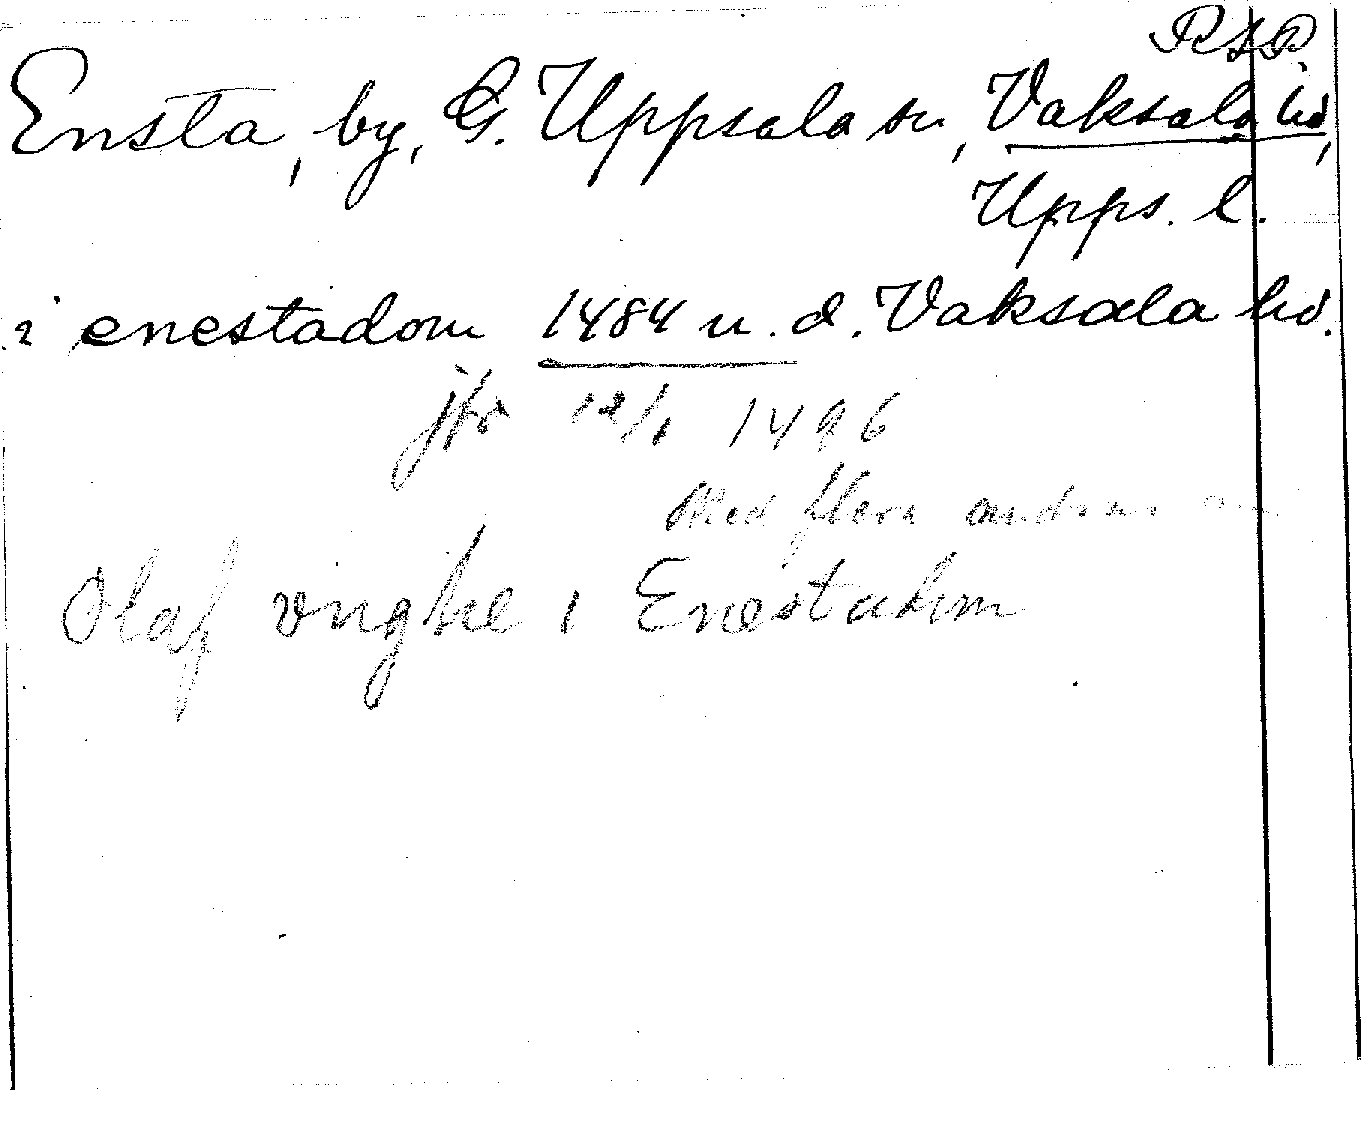 Ensta, by, G. Uppsala sn, Vaksala hd,
Upps. l.
i enestadom 1484 u. d. Vaksala hd.
jfr 12/1 1496
Med flera andra
Olaf vnghe i Enestadom